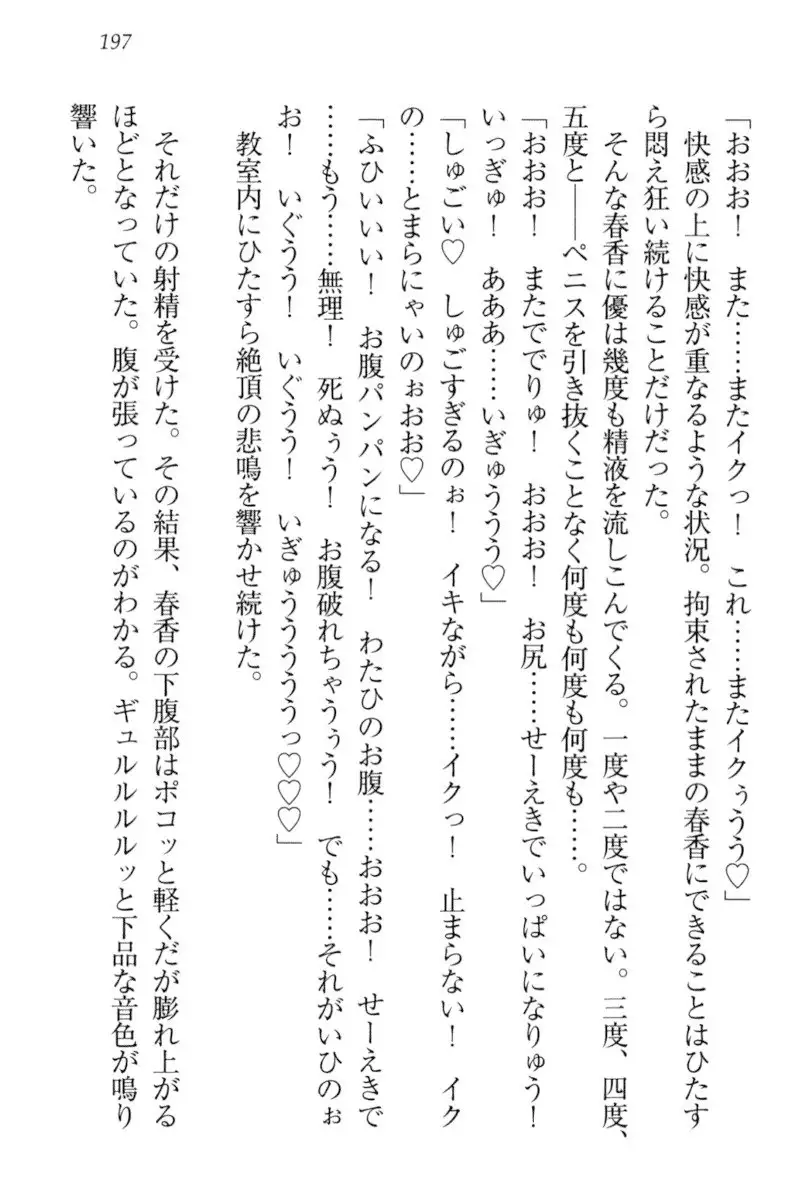 197
「おおお！　また……またイクっ！　これ……またイクぅうう♡」
快感の上に快感が重なるような状況。拘束されたままの春香にできることはひたす
ら悶え狂い続けることだけだった。
そんな春香に優は幾度も精液を流しこんでくる。一度や二度ではない。三度、四度、
五度と――ペニスを引き抜くことなく何度も何度も何度も……。
「おおお！　またででりゅ！　おおお！　お尻……せーえきでいっぱいになりゅう！
いっぎゅ！　あああ……いぎゅううう♡」
「しゅごい♡　しゅごすぎるのぉ！　イキながら……イクっ！　止まらない！　イク
の……とまらにゃいのぉおお♡」
「ふひいいい！　お腹パンパンになる！　わたひのお腹……おおお！　せーえきで
……もう……無理！　死ぬぅう！　お腹破れちゃうぅう！　でも……それがいひのぉ
お！　いぐうう！　いぐうう！　いぎゅうううううっ♡♡♡」
教室内にひたすら絶頂の悲鳴を響かせ続けた。
それだけの射精を受けた。その結果、春香の下腹部はポコッと軽くだが膨れ上がる
ほどとなっていた。腹が張っているのがわかる。ギュルルルルッと下品な音色が鳴り
響いた。